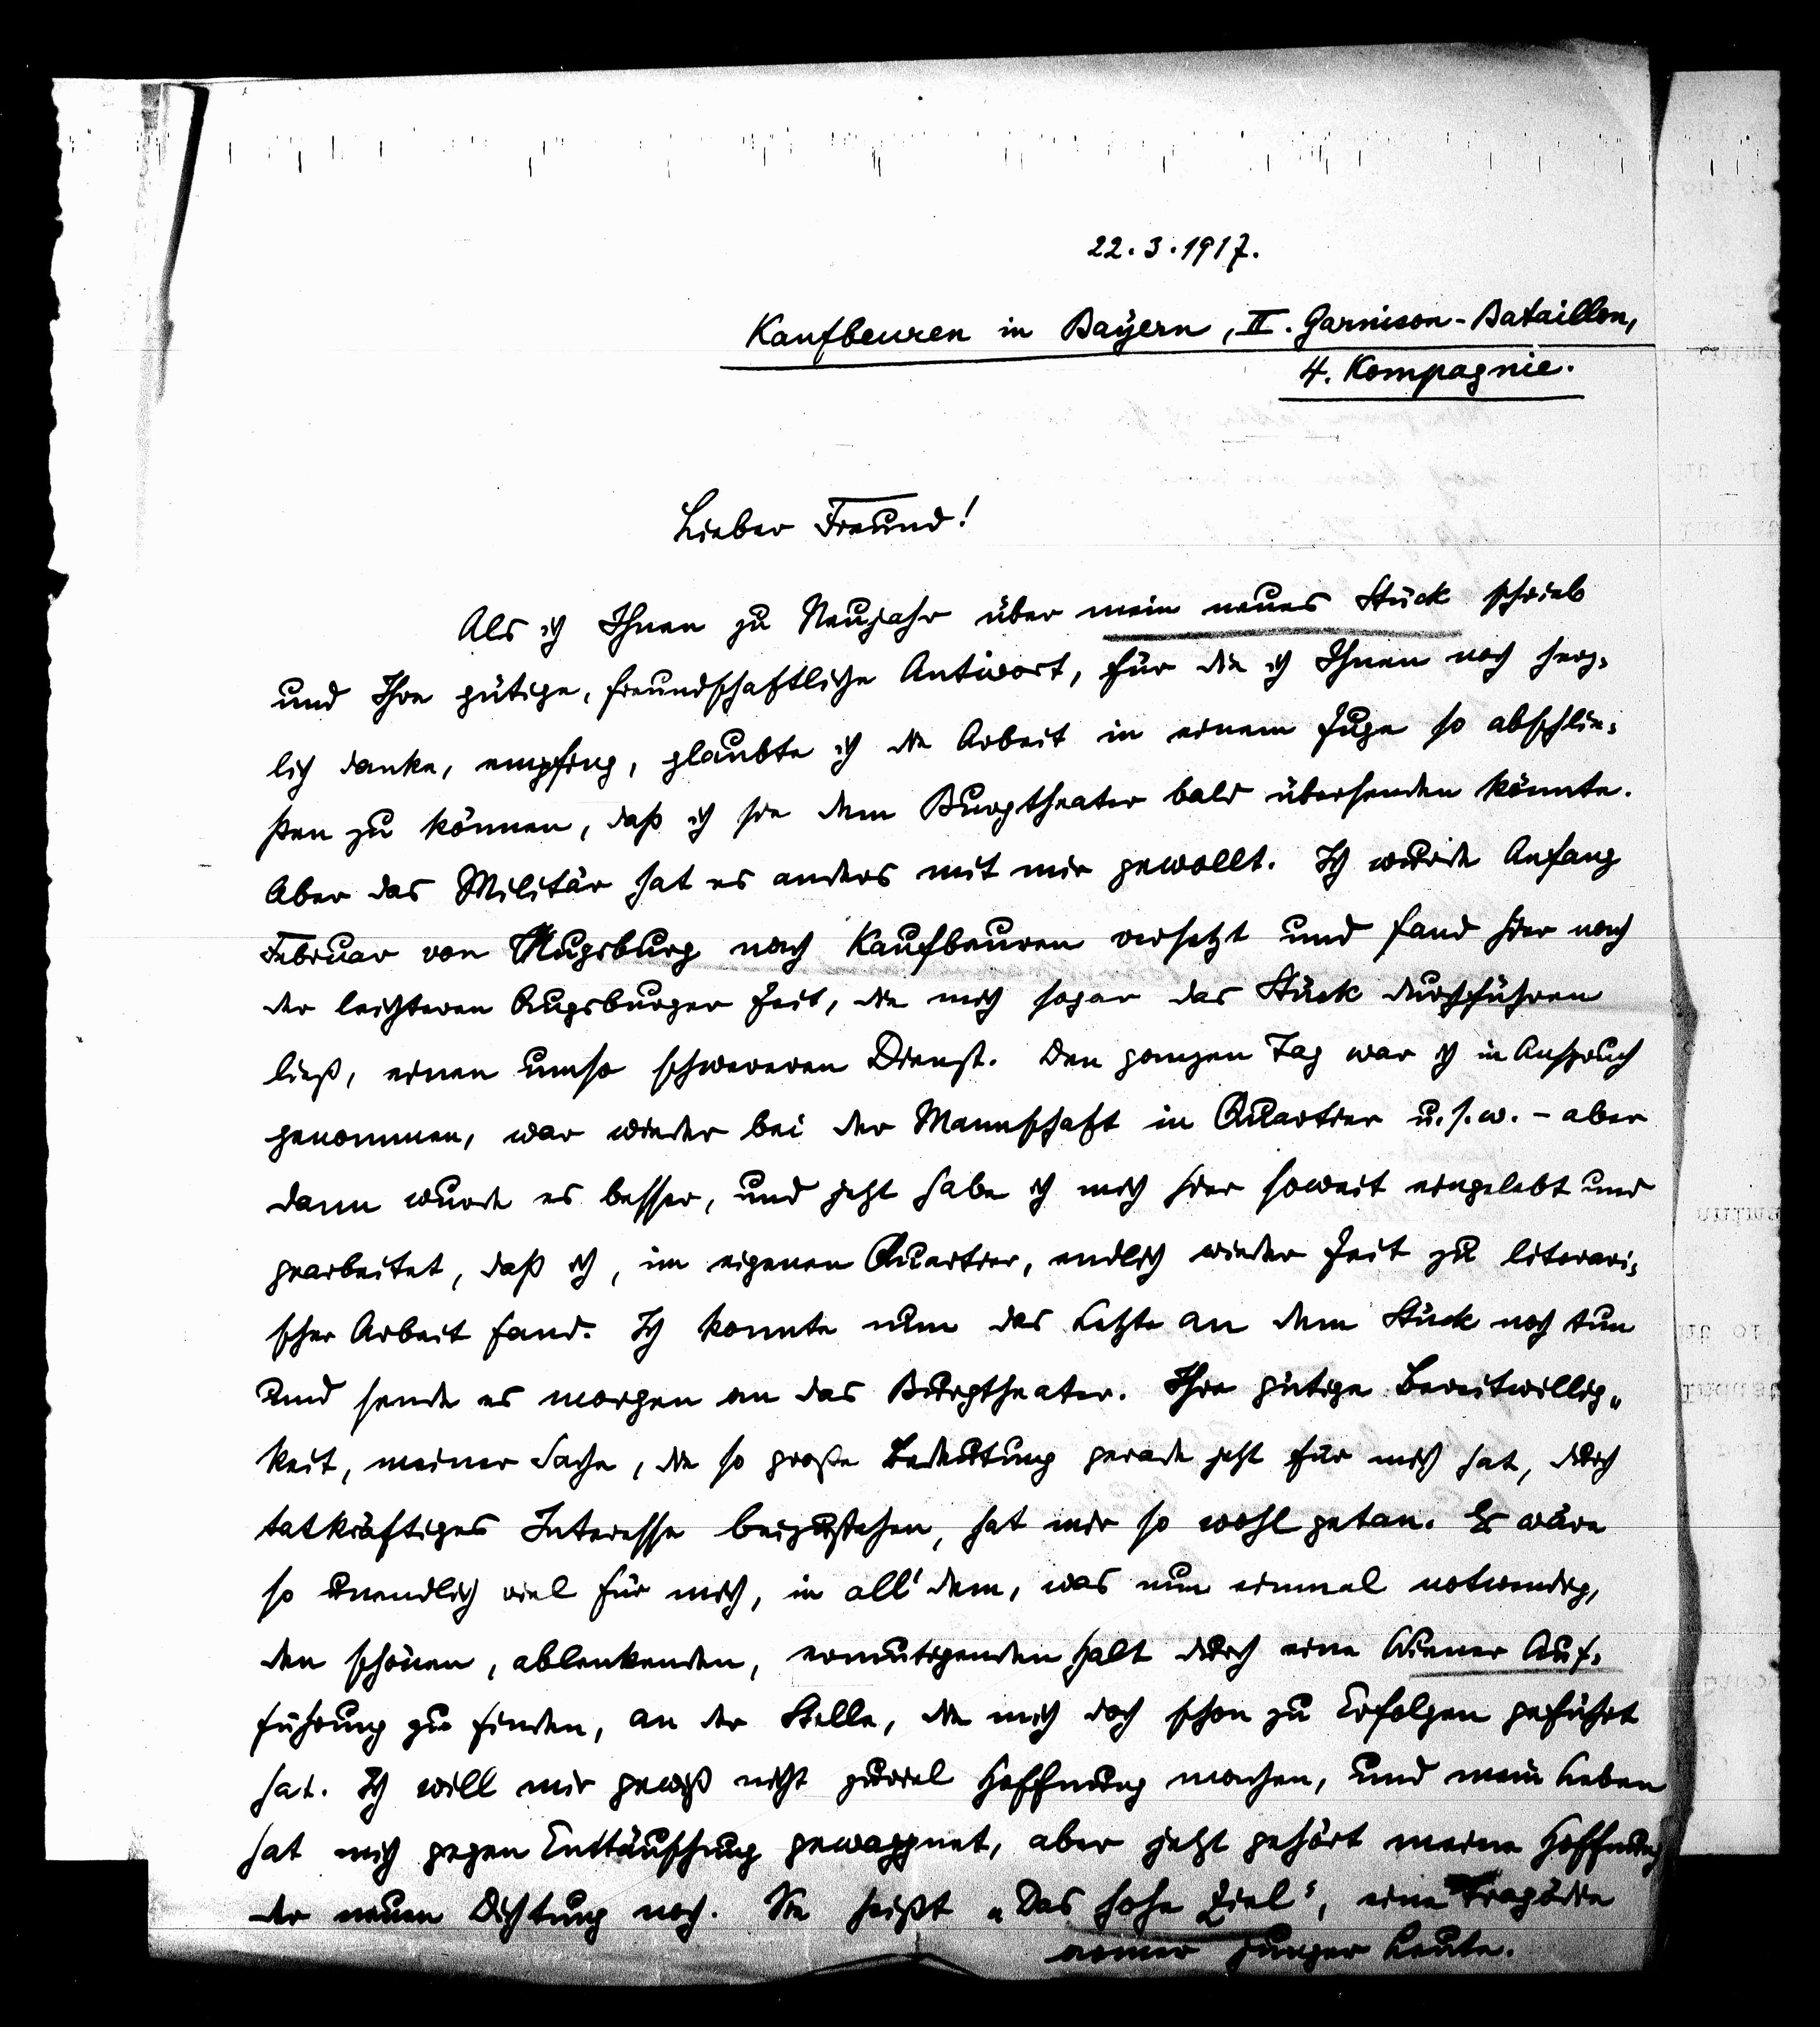 22.3.1917.
Kaufbeuren in Bayern, II. Garnison-Bataillon,
4. Kompagnie.
Lieber Freund!
Als ich Ihnen zu Neujahr über mein neues Stück schrieb
und Ihre gütige, freundschaftliche Antwort, für die ich Ihnen noch herz-
lich danke, empfing, glaubte ich die Arbeit in einem Zuge so abschlie-
ßen zu können, daß ich sie dem Burgtheater bald übersenden könnte.
Aber das Militär hat es anders mit mir gewollt. Ich wurde Anfang
Februar von Augsburg nach Kaufbeuren versetzt und fand hier nach
der leichteren Augsburger Zeit, die mich sogar das Stück durchführen
ließ, einen umso schwereren Dienst. Den ganzen Tag war ich in Anspruch
genommen, war wieder bei der Mannschaft in Quartier u.s.w. – aber
dann wurde es besser, und jetzt habe ich mich hier soweit eingelebt und
gearbeitet, daß ich, im eigenen Quartier, endlich wieder Zeit zu literari-
scher Arbeit fand. Ich konnte nun das Letzte an dem Stück noch tun
und sende es morgen an das Burgtheater. Ihre gütige Bereitwillig-
keit, meiner Sache, die so große Bedeutung gerade jetzt für mich hat, durch
tatkräftiges Interesse beizustehen, hat mir so wohl getan. Es wäre
so unendlich viel für mich, in all' dem, was nun einmal notwendig,
den schönen, ablenkenden, ermutigenden Halt durch eine Wiener Auf-
führung zu finden, an der Stelle, die mich doch schon zu Erfolgen geführt
hat. Ich will mir gewiß nicht zuviel Hoffnung machen, und mein Leben
hat mich gegen Enttäuschung gewappnet, aber jetzt gehört meine Hoffnung
der neuen Dichtung noch. Sie heißt „Das hohe Ziel", eine Tragödie
armer junger Leute.